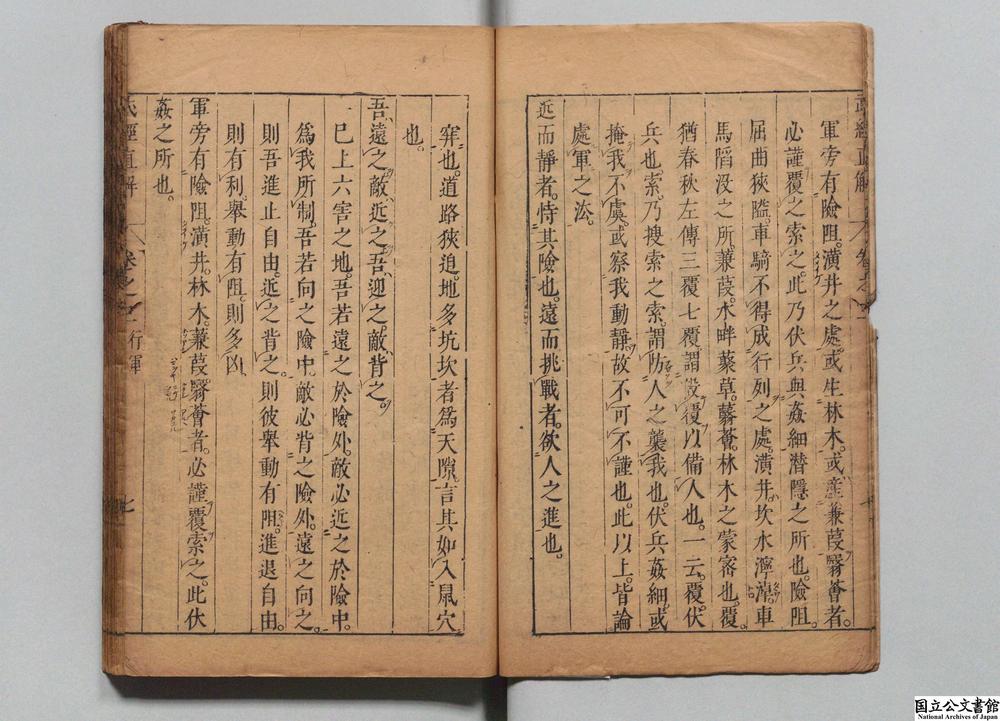 武經直解 卷之
軍旁有險阻。潢井之處。或生林木。或產蒹葭翳薈者。
必謹覆之索之。此乃伏兵與姦細潛隱之所也。險阻。
屈曲狹隘。車騎不得成行列之處。潢井。坎水濘淖。車
馬陷没之所。蒹葭。水畔藂草。翳薈。林木之蒙密也。覆
猶春秋左傳三覆七覆。謂設覆以備人也。一云。覆伏
兵也。索。乃搜索之索。謂防人之襲我也。伏兵姦細。或
掩我不虞。或察我動靜。故不可不謹也。此以上。皆論
處軍之法。
近而靜者。恃其險也。遠而挑戰者。欲人之進也。
穽也。道路狹迫。地多坑坎者。爲天隙。言其如入鼠穴
也。
吾遠之。敵近之。吾迎之。敵背之。
已上六害之地。吾若遠之於險外。敵必近之於險中。
爲我所制。吾若向之險中。敵必背之險外。遠之向之。
則吾進止自由。近之背之。則彼舉動有阻。進退自由。
則有利。舉動有阻。則多凶。
軍旁有險阻。潢井。林木。蒹葭。翳薈者。必謹覆索之。此伏
姦之所也。
武經直解 卷之 行軍 七
国立公文書館
National Archives of Japan